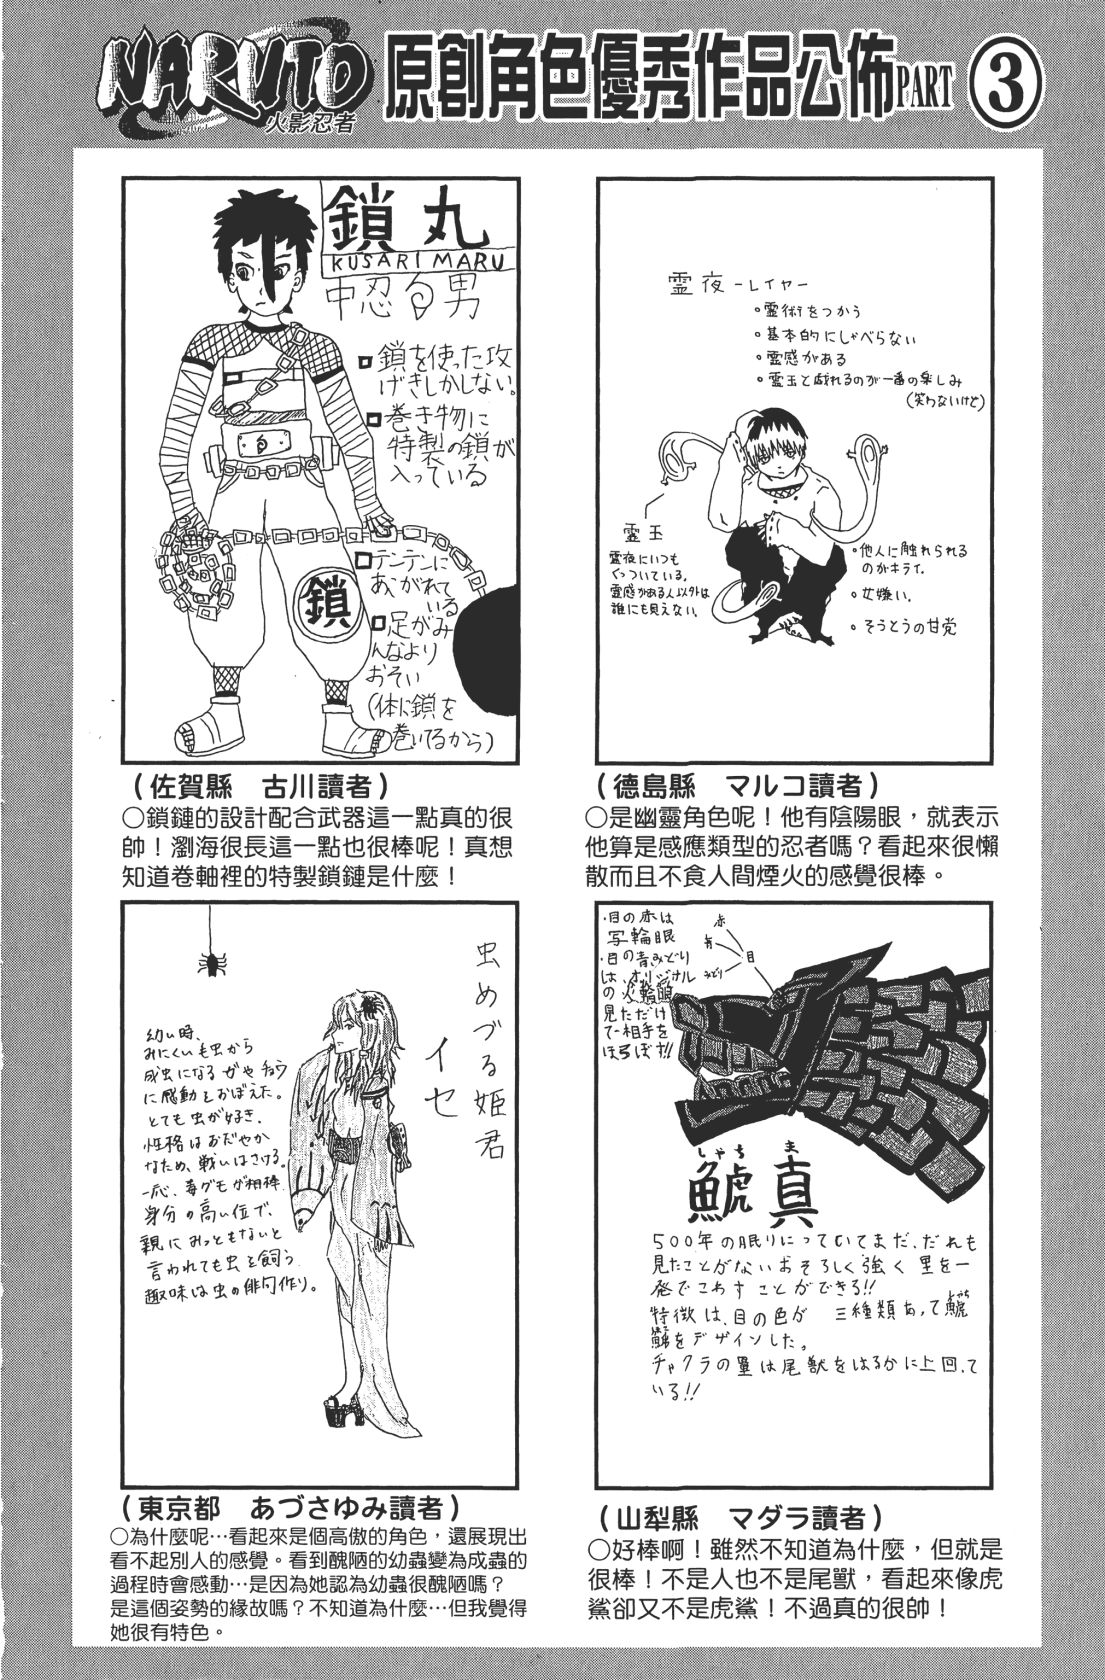 NARUTO
火影忍者
原創角色優秀作品公佈PART ③
鎖丸
KUSARIMARU
中忍 男
鎖を使った攻
げきしかしない。
巻き物に
特製の鎖が
入っている
テンテンに
あこがれて
いる
足がみ
んなより
おそい
(体に鎖を
巻いてるから)
鎖
(佐賀縣 古川讀者)
○鎖鏈的設計配合武器這一點真的很
帥！瀏海很長這一點也很棒呢！真想
知道卷軸裡的特製鎖鏈是什麼！
霊夜 -レイヤー
。霊術をつかう
。基本的にしゃべらない
。霊感がある
。霊玉と戯れるのが一番の楽しみ
(笑わないけど)
霊玉
霊夜にいつも
くっついている。
霊感がある人以外は
誰にも見えない。
。他人に触れられる
のがキライ。
。女嫌い。
。そうとうの甘党
(德島縣 マルコ讀者)
○是幽靈角色呢！他有陰陽眼，就表示
他算是感應類型的忍者嗎？看起來很懶
散而且不食人間煙火的感覺很棒。
虫めづる姫君
イセ
幼い時、
みにくい毛虫から
成虫になるガやチョウ
に感動をおぼえた。
とても虫が好き。
性格はおだやか
なため、戦いはさける。
一応、毒グモが相棒
身分の高い位で、
親にみっともないと
言われても虫を飼う
趣味は虫の俳句作り。
(東京都 あづさゆみ讀者)
○為什麼呢…看起來是個高傲的角色，還展現出
看不起別人的感覺。看到醜陋的幼蟲變為成蟲的
過程時會感動…是因為她認為幼蟲很醜陋嗎？
是這個姿勢的緣故嗎？不知道為什麼…但我覺得
她很有特色。
・目の赤は
写輪眼
・目の青みどり
は、オリジナル
の火輪眼
見ただけ
で相手を
ほろぼす!!
赤
青
みどり
目
しゃち ま
鯱真
500年の眠りについていてまだ、だれも
見たことがないおそろしく強く里を一
発でこわすことができる!!
特徴は、目の色が 三種類あって鯱
をデザインした。
チャクラの量は尾獣をはるかに上回って
いる!!
(山梨縣 マダラ讀者)
○好棒啊！雖然不知道為什麼，但就是
很棒！不是人也不是尾獸，看起來像虎
鯊卻又不是虎鯊！不過真的很帥！